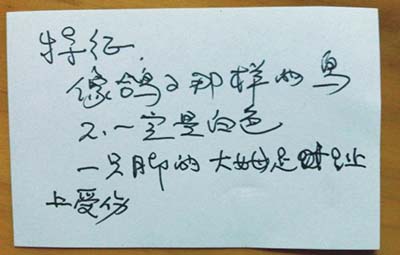 特征.
像鸽子那样的鸟
2.一定是白色
一只脚的大拇足趾
上受伤